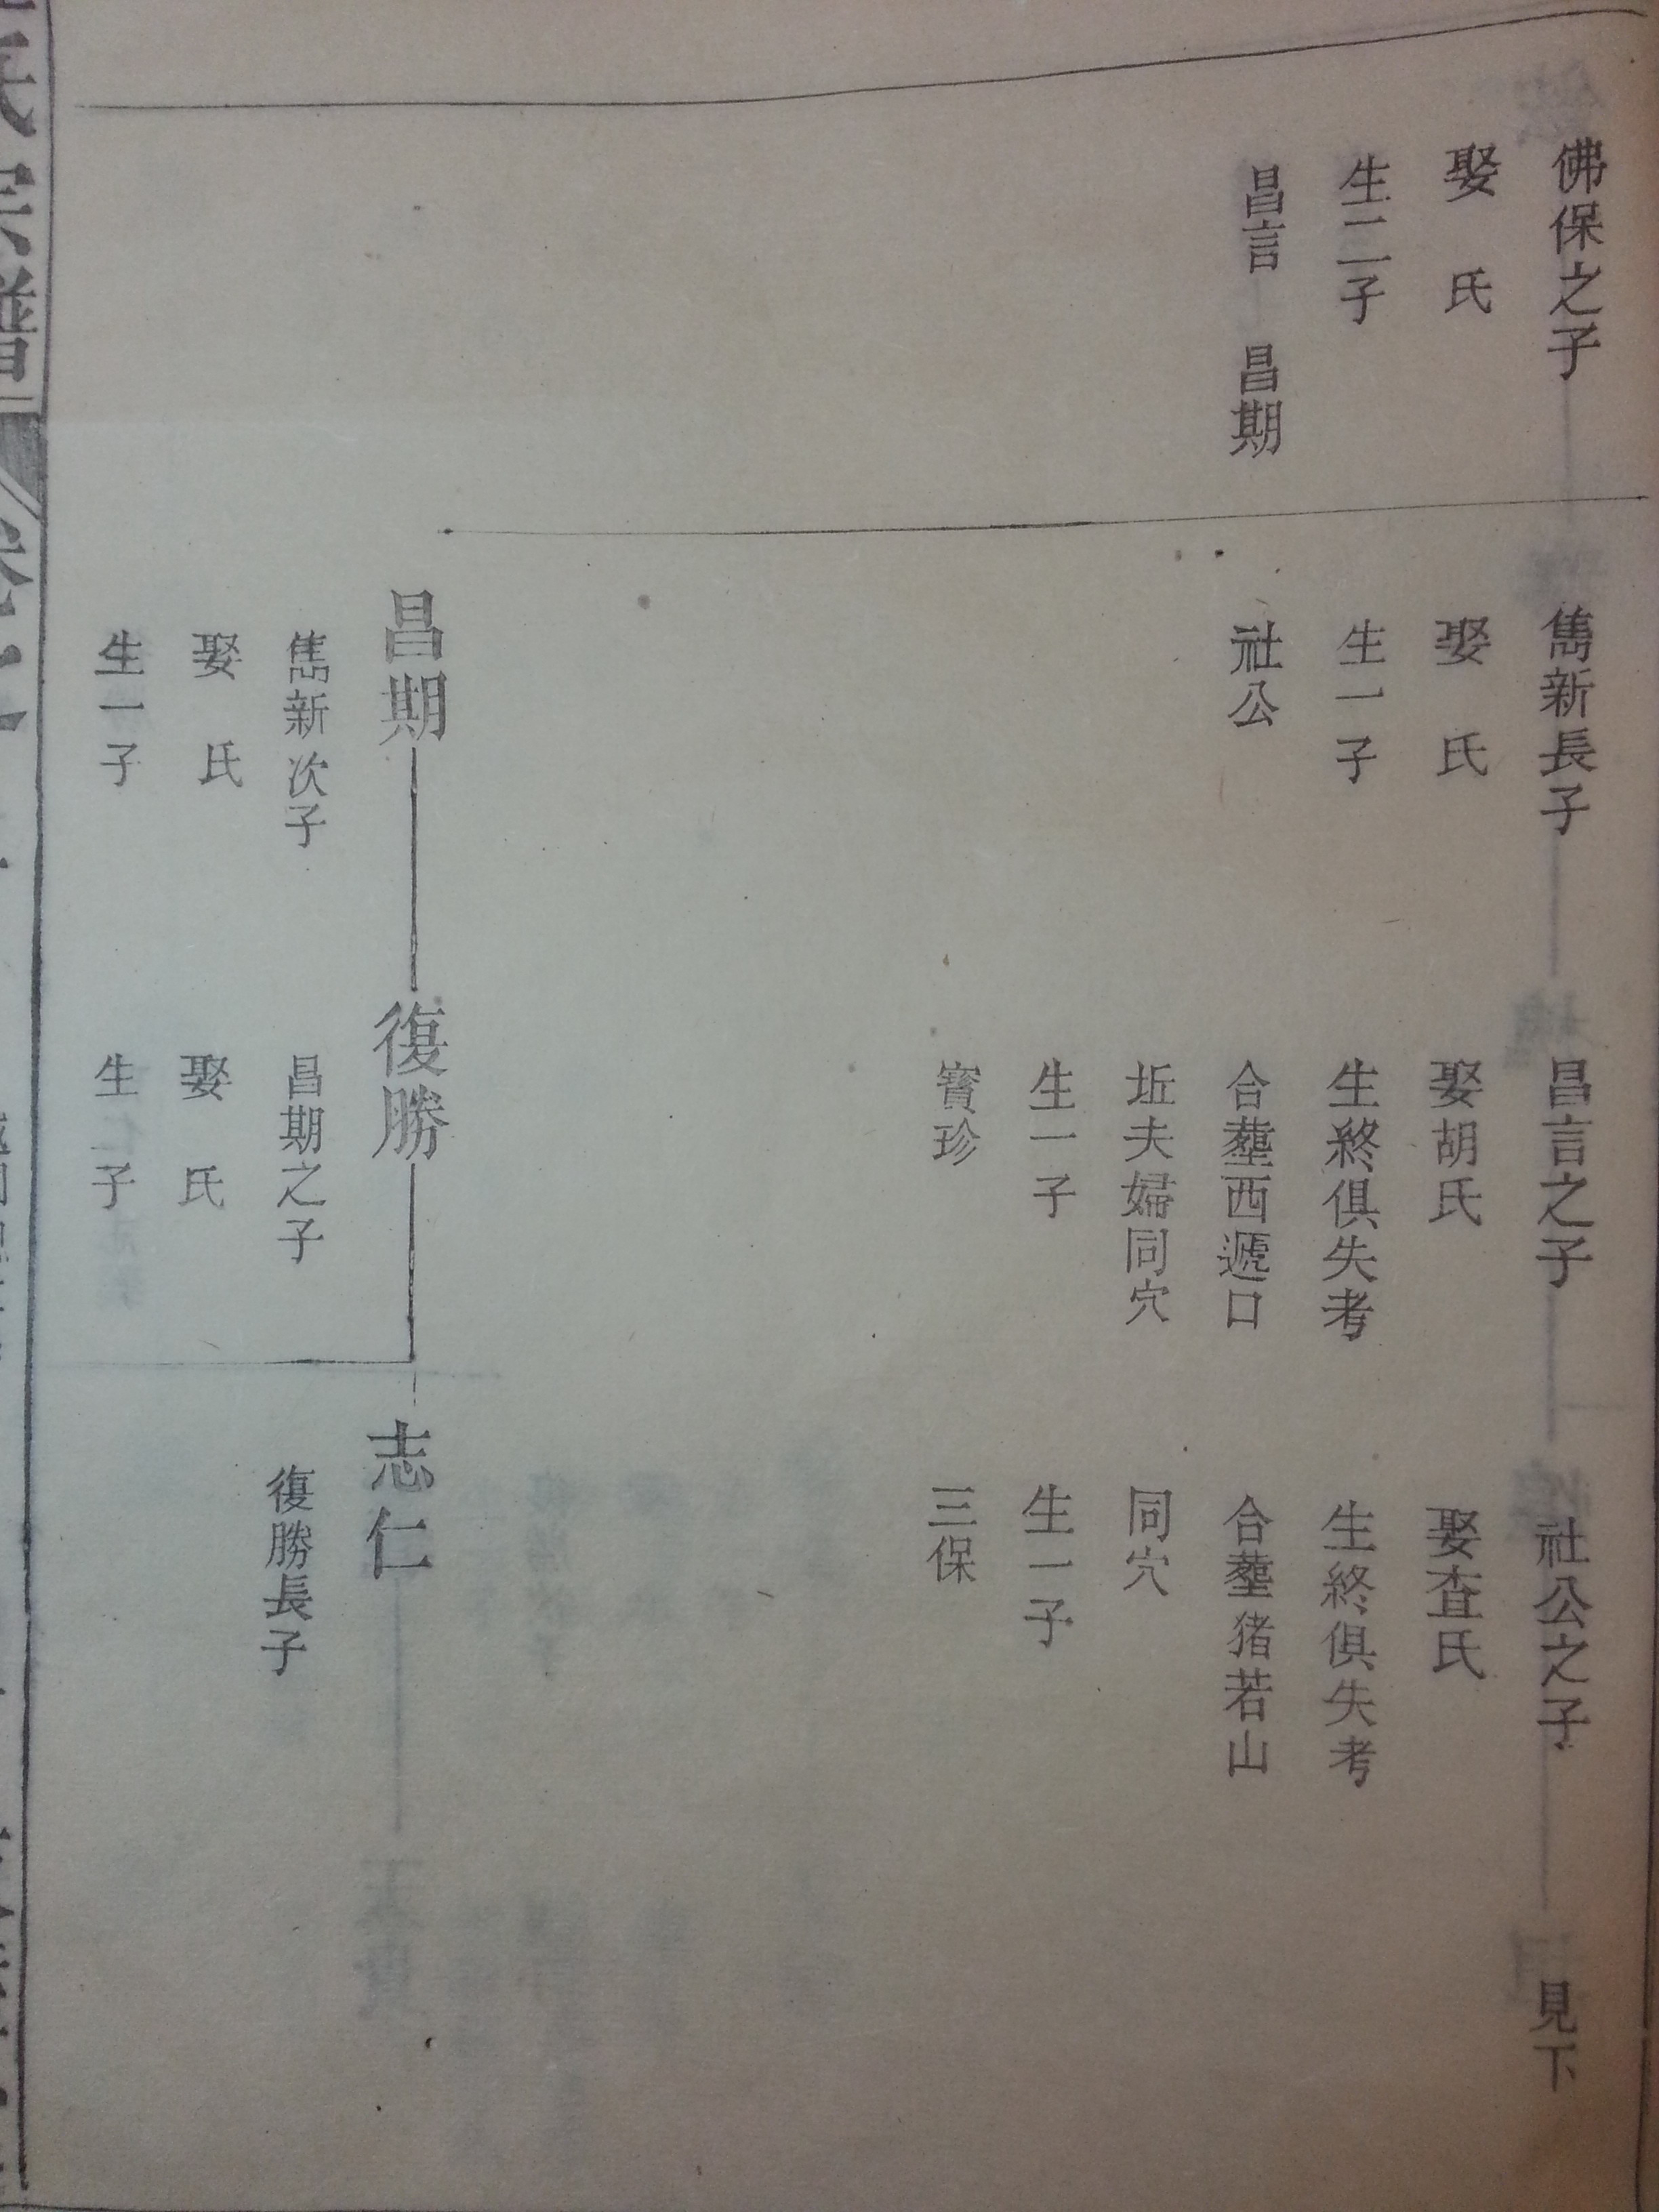 佛保之子
娶　氏
生二子
昌言　昌期
雋新長子
娶　氏
生一子
社公
昌言之子
娶胡氏
生終俱失考
合塟西遞口
坵夫婦同穴
生一子
寳珍
社公之子
娶査氏
生終俱失考
合塟猪若山
同穴
生一子
三保
見下
昌期
雋新次子
娶　氏
生一子
復勝
昌期之子
娶　氏
生　子
志仁
復勝長子
氏宗譜